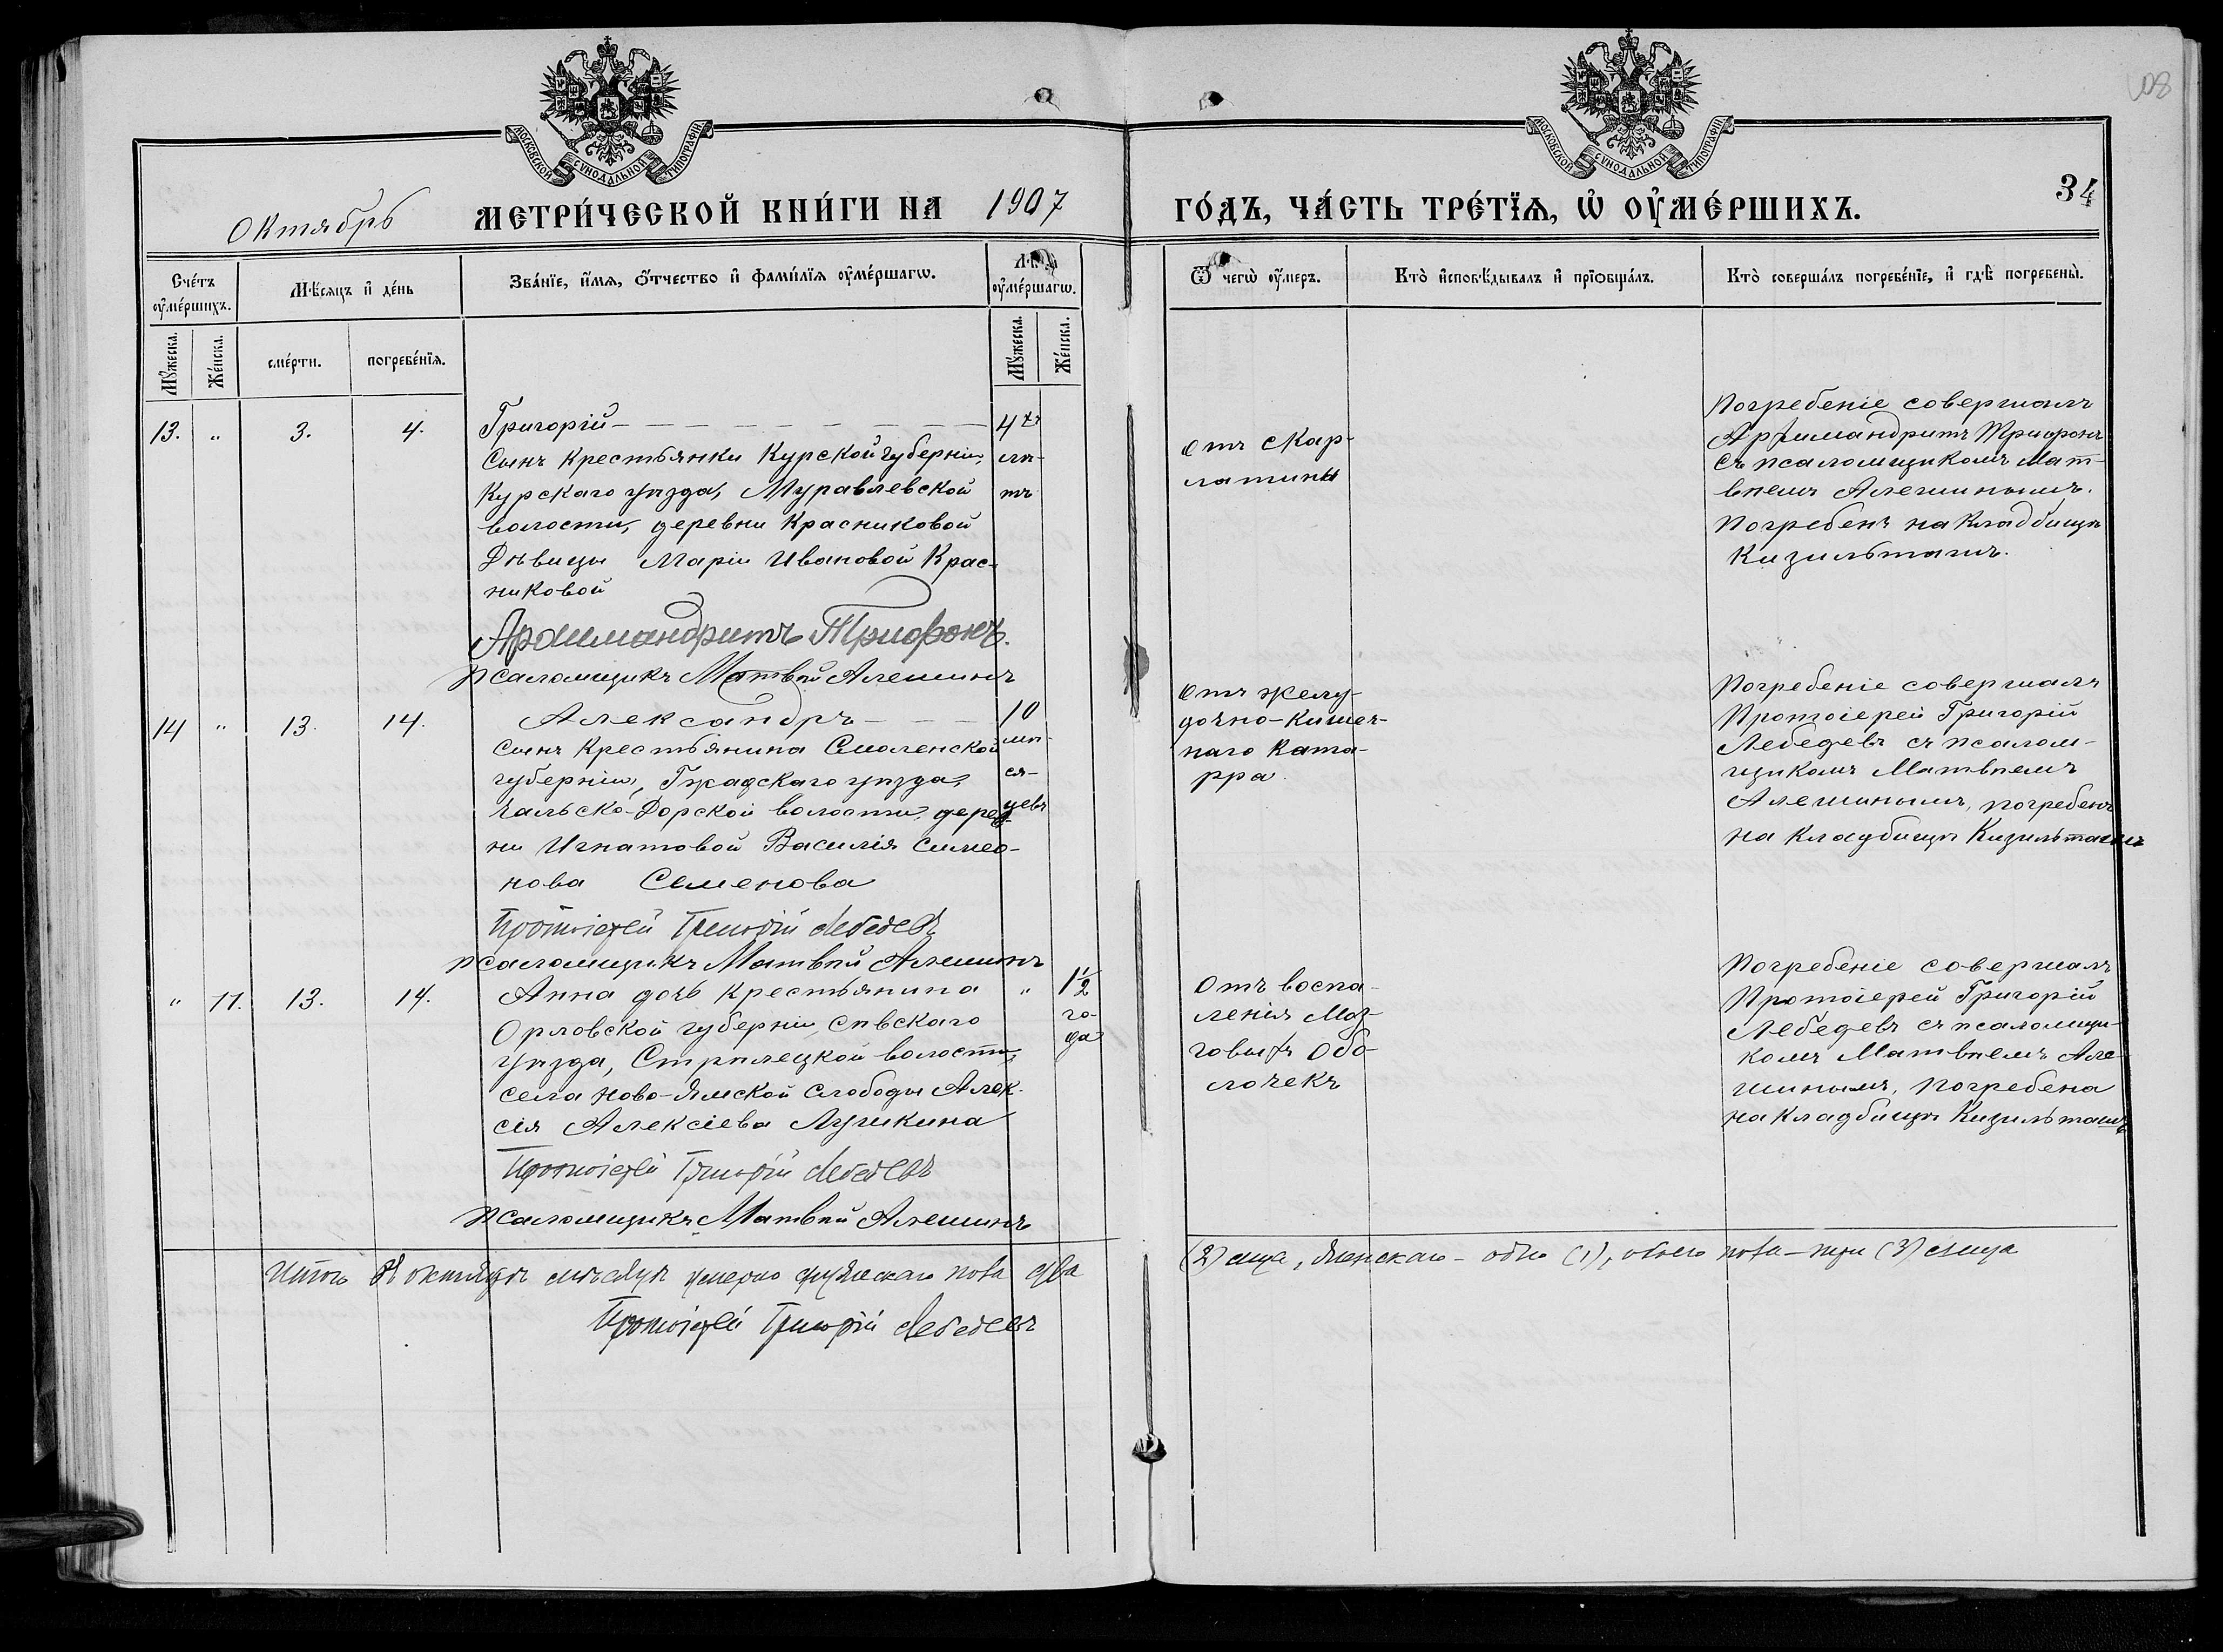 108
МОСКОВСКОЙ СУНОДАЛЬНОЙ ТИПОГРАФІИ
МОСКОВСКОЙ СУНОДАЛЬНОЙ ТИПОГРАФІИ
Октябрь МЕТРИ́ЧЕСКОЙ КНИ́ГИ НА 1907
ГО́ДЪ, ЧА́СТЬ ТРЕ́ТЇѦ, Ѡ҆ ОУ҆МЕ́РШИХЪ.
34
Сче́тъ оу҆ме́ршихъ.
Мѣ́сяцъ и҆ де́нь
Зва́нїе, и҆́мѧ, ѻ҆́тчество и҆ фами́лїѧ оу҆ме́ршагѡ.
Лѣта оу҆ме́ршагѡ.
Ѿ чегѡ̀ оу҆́меръ.
Кто̀ и҆сповѣ́дывалъ и҆ прїѡбща́лъ.
Кто̀ соверша́лъ погребе́нїе, и҆ гдѣ̀ погребены̀.
Мꙋ́жеска.
Же́нска.
сме́рти.
погребе́нїѧ.
Мꙋ́жеска.
Же́нска.
13. " 3. 4.
Григорій — 4хъ
Сынъ Крестьянки Курской губерніи, лѣ-
Курскаго уѣзда, Муравлевской тъ
волости, деревни Красниковой
Дѣвицы Маріи Ивановой Крас-
никовой
Архимандритъ Трифонъ.
Псаломщикъ Матвѣй Алешинъ
отъ скар-
латины
Погребеніе совершалъ
Архимандритъ Трифонъ
съ псаломщикомъ Мат-
вѣемъ Алешинымъ.
Погребенъ на Кладбищѣ
Кизильташъ.
14 " 13. 14.
Александръ — 10
Сынъ Крестьянина Смоленской мѣ-
губерніи, Гжадскаго уѣзда, ся-
чальско-Дорской волости, дерев- цевъ
ни Игнатовой Василія Симео-
нова Семенова
Протоіерей Григорій Лебедевъ
псаломщикъ Матвѣй Алешинъ
Отъ желу-
дочно-кишеч-
наго ката-
рра.
Погребеніе совершалъ
Протоіерей Григорій
Лебедевъ съ псалом-
щикомъ Матвѣемъ
Алешинымъ, погребенъ
на кладбищѣ Кизильташъ
" 11. 13. 14.
Анна дочь Крестьянина " 1½
Орловской губерніи, Сѣвскаго го-
уѣзда, Стрѣлецкой волости, да
села Ново-Ямской Слободы Алек-
сія Алексіева Лушкина
Протоіерей Григорій Лебедевъ
Псаломщикъ Матвѣй Алешинъ
Отъ воспа-
ленія моз-
говыхъ обо-
лочекъ
Погребеніе совершалъ
Протоіерей Григорій
Лебедевъ съ псаломщи-
комъ Матвѣемъ Але-
шинымъ, погребена
на кладбищѣ Кизильташъ
Итого въ октябрѣ мѣсяцѣ умерло мужескаго пола два
(2) лица, женскаго - одно (1), обоего пола - три (3) лица
Протоіерей Григорій Лебедевъ